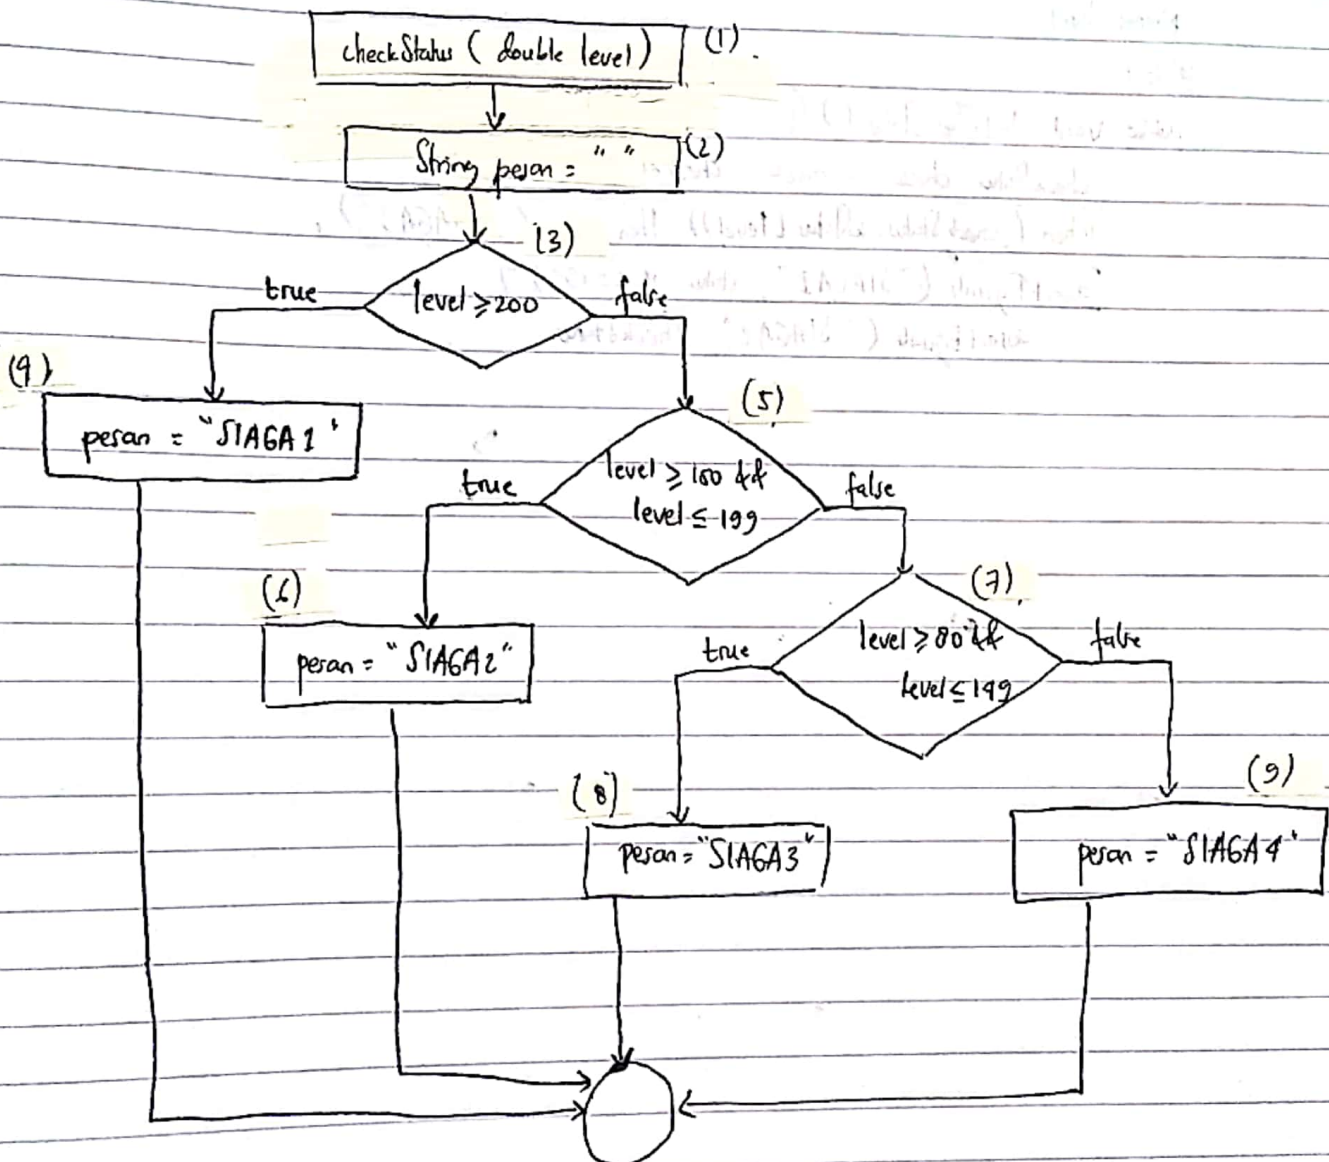 checkStatus ( double level)
(1)
String pesan = " "
(2)
(3)
true
level ≥ 200
false
(4)
pesan = "SIAGA 1"
(5)
true
level ≥ 150 &&
level ≤ 199
false
(6)
pesan = "SIAGA 2"
(7)
true
level ≥ 80 &&
level ≤ 149
false
(8)
pesan = "SIAGA 3"
(9)
pesan = "SIAGA 4"